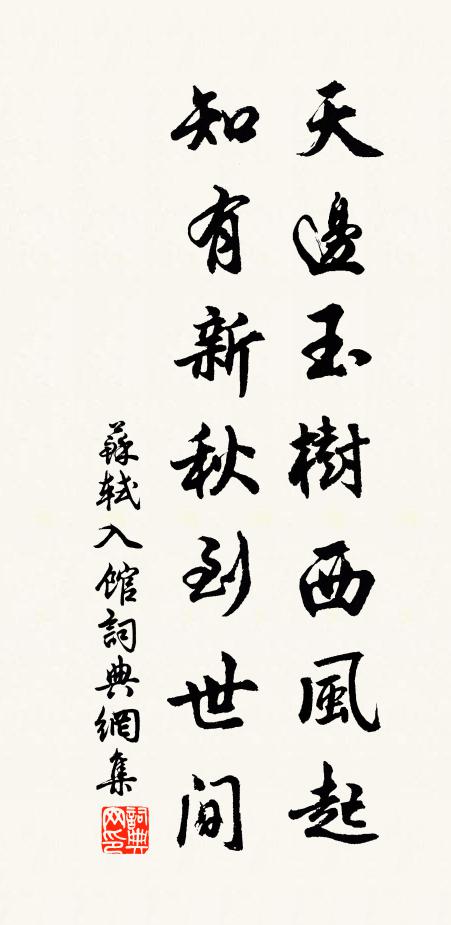 天邊玉樹西風起
知有新秋到世間
蘇軾入館詞典網集
詞典
网印